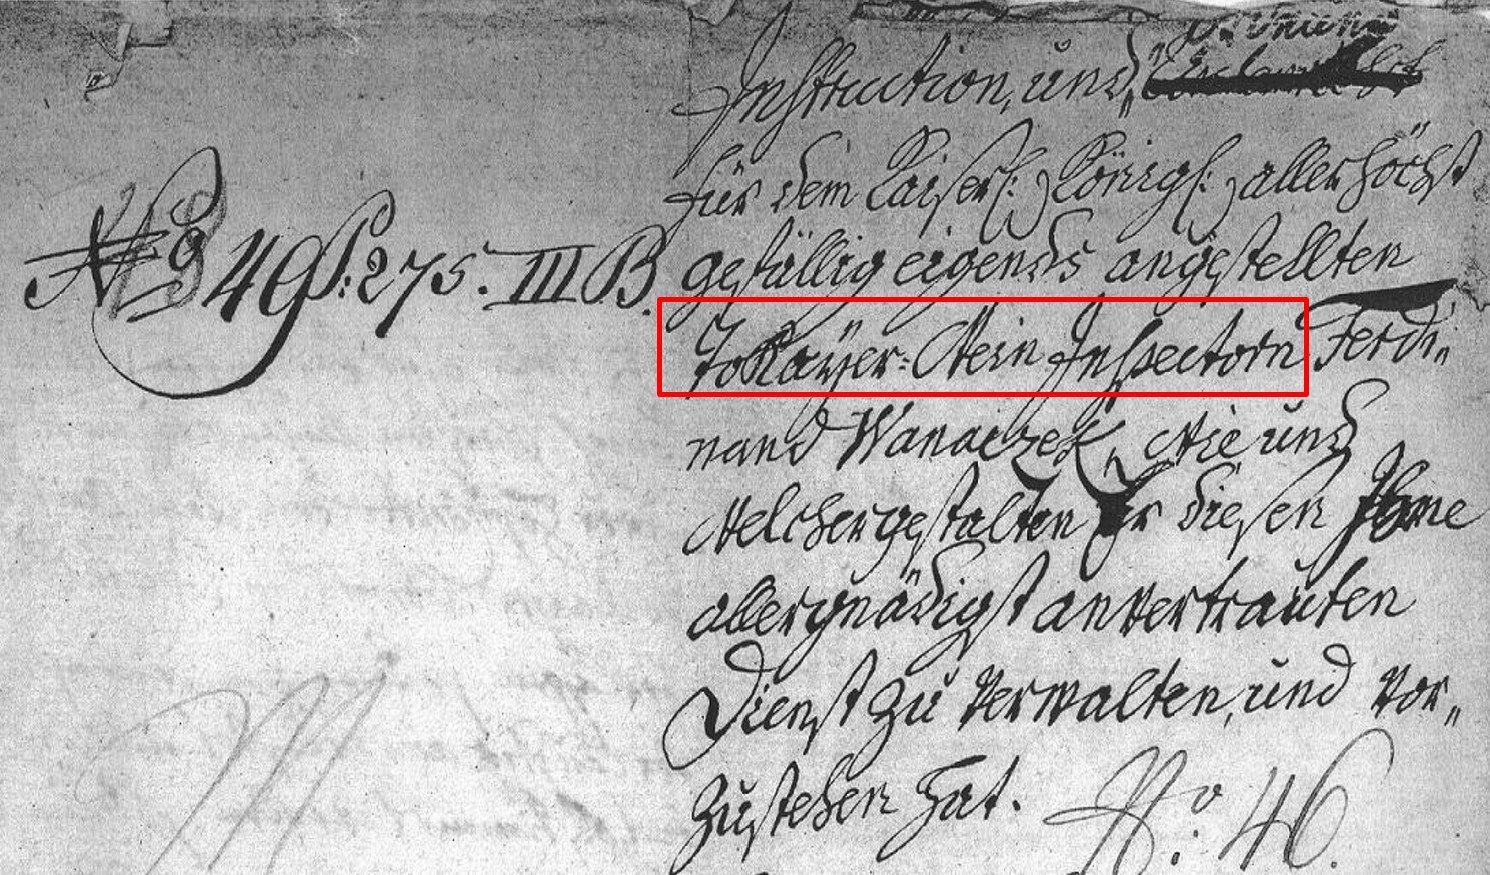 N 349 P: 275. III B.
Instruction, und
für dem Kaiserl: Königl: allerhöchst
gefällig eigends angestellten
Tokayer=Wein Inspectorn Ferdi„
nand Wanaczek, Wie und
Welchergestalten Er diesen Ihme
allergnädigst anvertrauten
Dienst zu Verwalten, und vor„
zustehen hat.
No: 46.